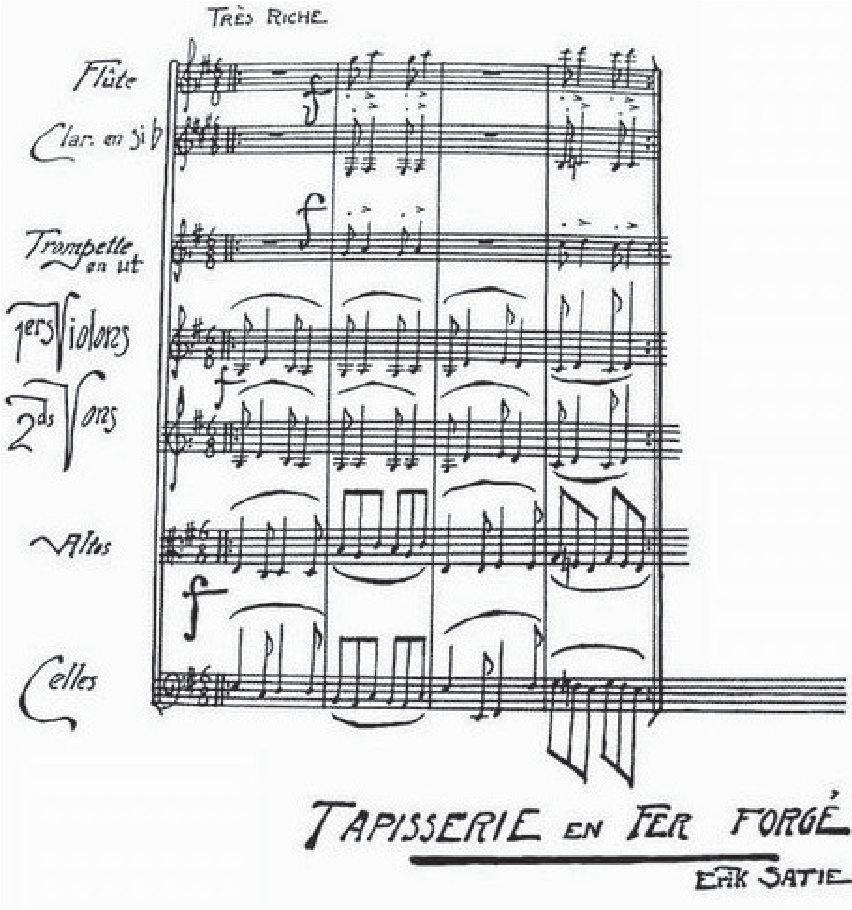 TRÈS RICHE
Flûte
Clar. en si b
Trompette
en ut
1ers Violons
2ds Vons
Altos
Celles
TAPISSERIE EN FER FORGÉ
ERIK SATIE